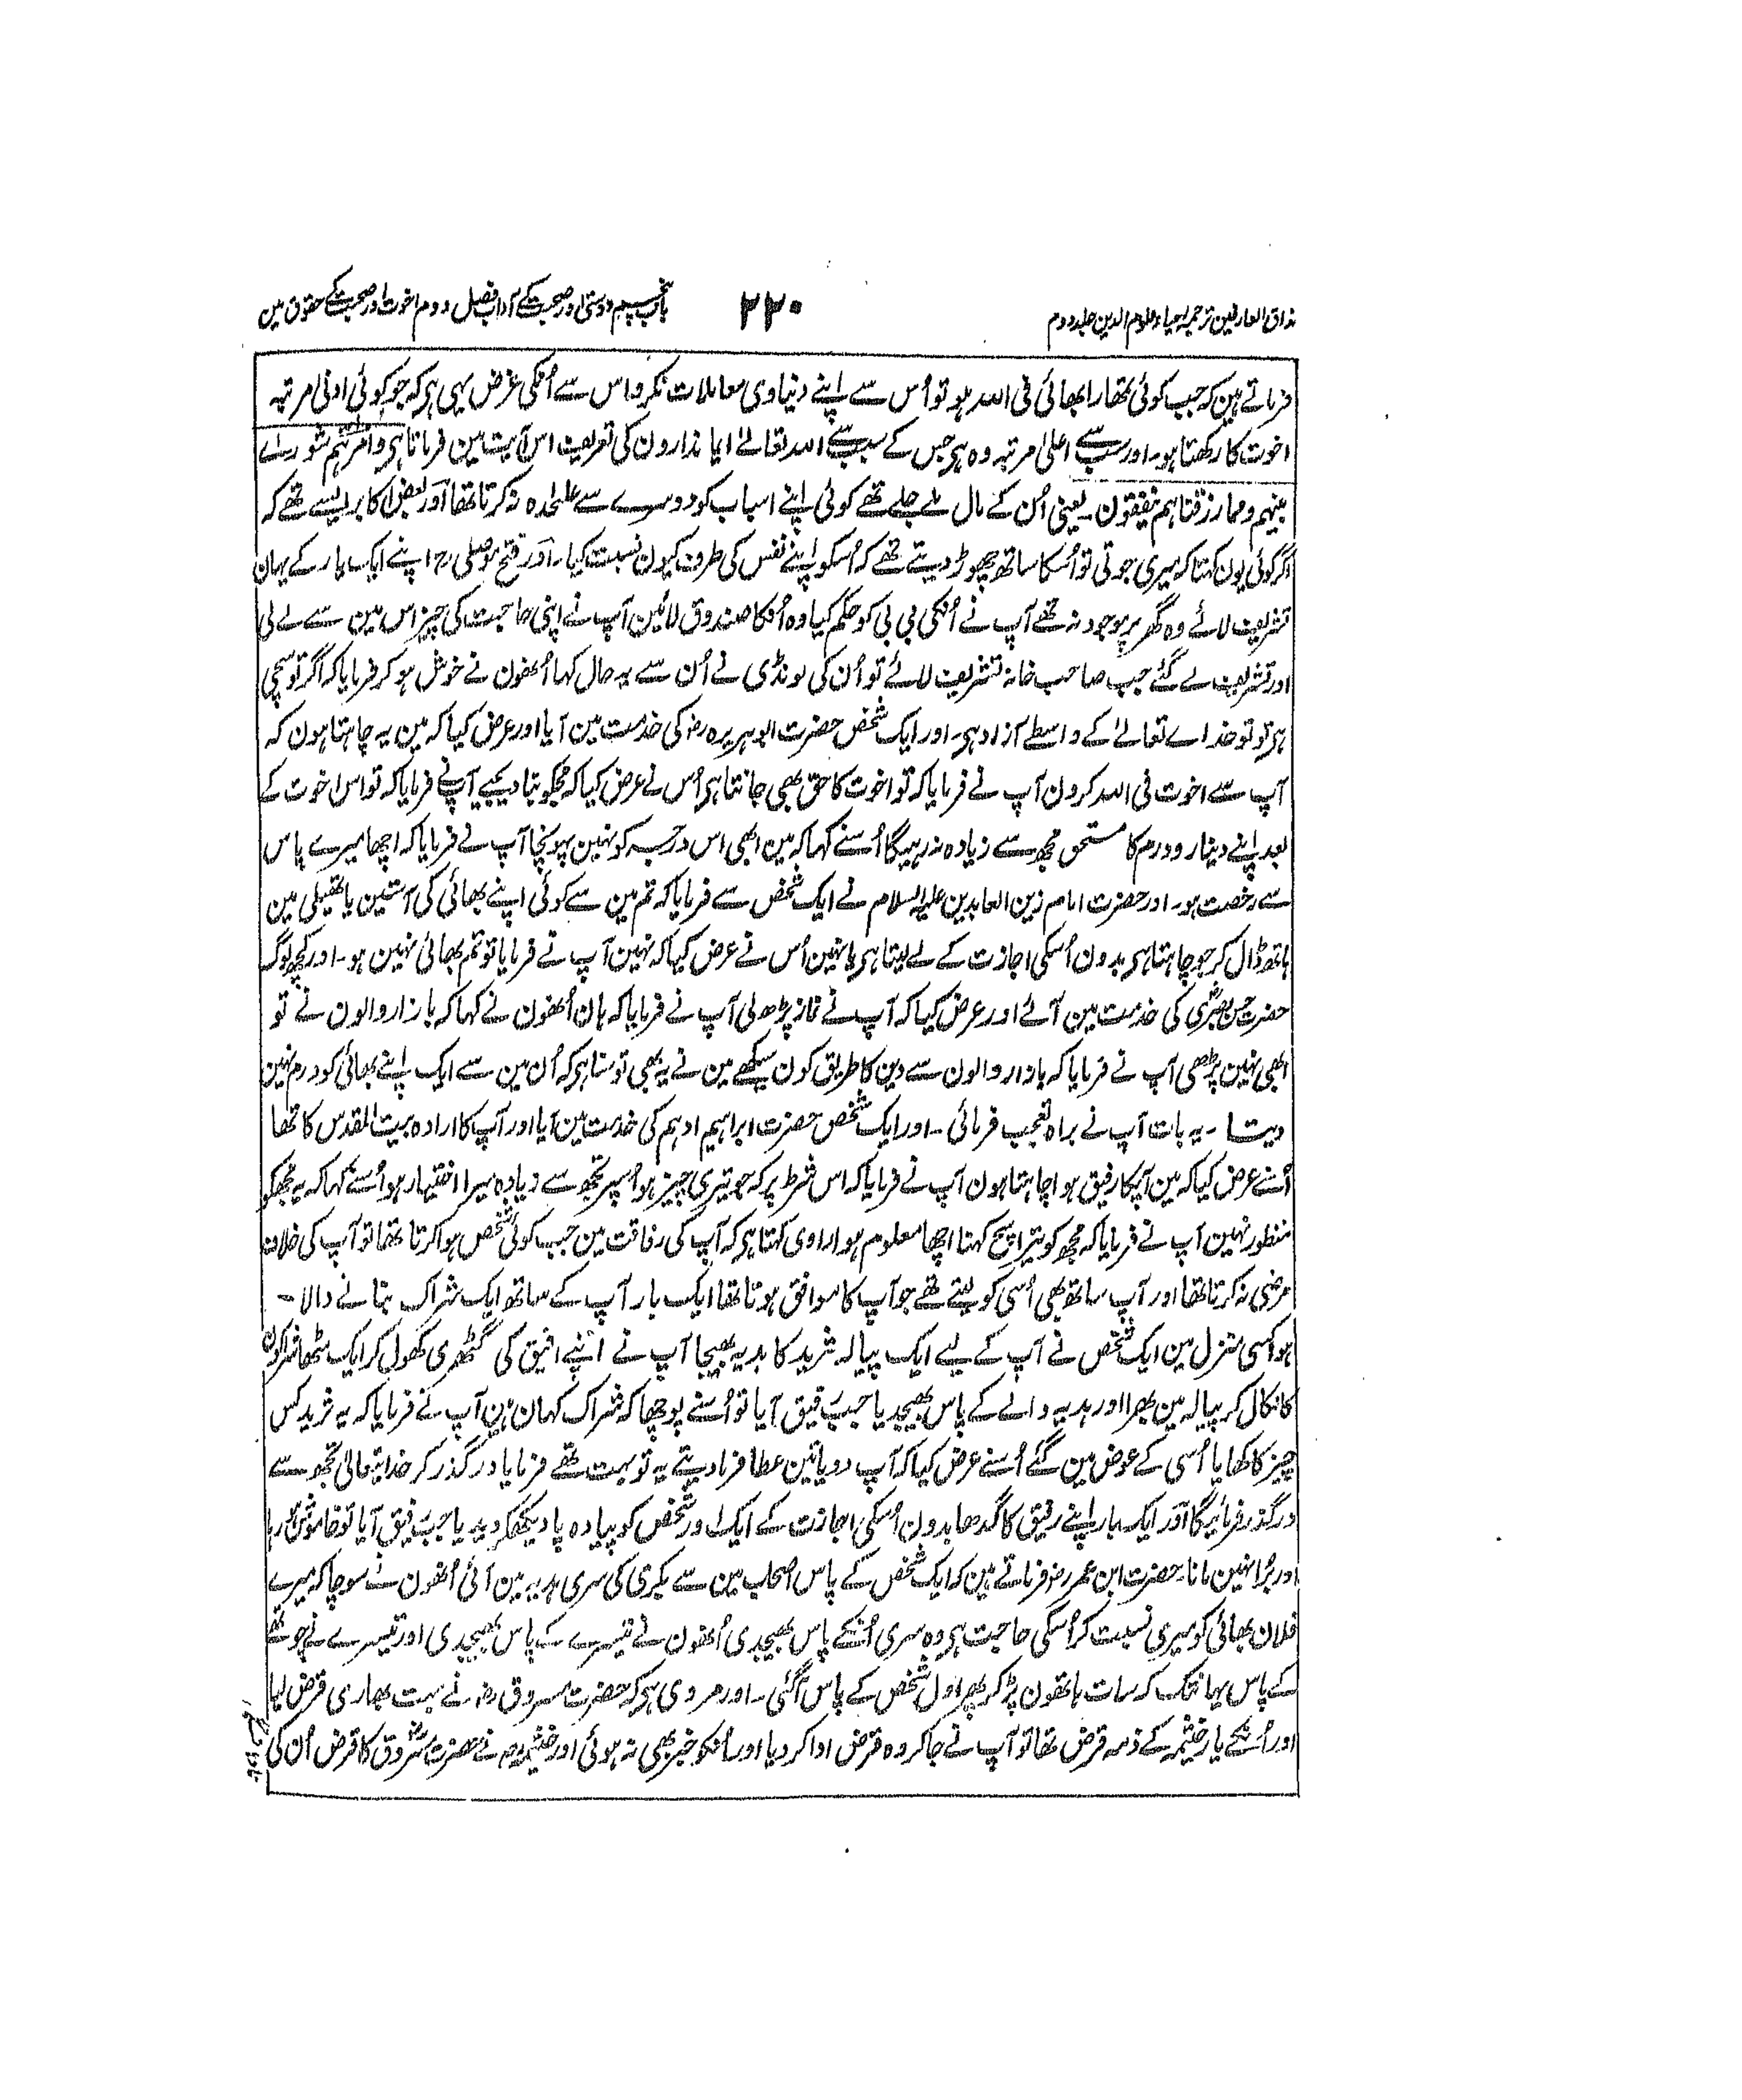 مذاق العارفین ترجمہ احیاء علوم الدین جلد دوم
۲۲۰
باب پنجم دوستی اور صحبت کے آداب فصل دوم اخوت اور صحبت کے حقوق مین
فرماتے ہین کہ جب کوئی تمھارا بھائی فی اللہ ہو تو اُس سے اپنے دنیاوی معاملات نکرو اس سے اُنکی غرض یہی ہی کہ جو کوئی ادنی مرتبہ
اخوت کا رکھتا ہو۔ اور سب سے اعلیٰ مرتبہ وہ ہی جس کے سبب سے اللہ تعالےٰ ایمانداروں کی تعریف اس آیت مین فرماتا ہی وامرہم شورےٰ
بینہم ومما رزقناہم ینفقون۔ یعنی اُن کے مال ملے جلے تھے کوئی اپنے اسباب کو دوسرے سے علٰحدہ نہ کرتا تھا اور بعض اکابر ایسے تھے کہ
اگر کوئی یون کہتا کہ میری جوتی تو اُسکا ساتھ چھوڑ دیتے تھے کہ اُسکو اپنے نفس کی طرف کیون نسبت کیا۔ اور فتح موصلی رح اپنے ایک یار کے یہان
تشریف لائے وہ گھر پر موجود نہ تھے آپ نے اُنکی بی بی کو حکم کیا وہ اُنکا صندوق لائین آپ نے اپنی حاجت کی چیز اس مین سے لے لی
اور تشریف لے گئے جب صاحب خانہ تشریف لائے تو اُن کی لونڈی نے اُن سے یہ حال کہا اُنھون نے خوش ہو کر فرمایا کہ اگر تو سچی
ہی تو تو خداے تعالےٰ کے واسطے آزاد ہی۔ اور ایک شخص حضرت ابو ہریرہ رضہ کی خدمت مین آیا اور عرض کیا کہ مین یہ چاہتا ہون کہ
آپ سے اخوت فی اللہ کرون آپ نے فرمایا کہ تو اخوت کا حق بھی جانتا ہی اُس نے عرض کیا کہ مجکو بتا دیجیے آپنے فرمایا کہ تو اس اخوت کے
بعد اپنے دینار و درم کا مستحق مجھ سے زیادہ نہ رہیگا اُسنے کہا کہ مین ابھی اس درجہ کو نہین پہونچا آپ نے فرمایا کہ اچھا میرے پاس
سے رخصت ہو۔ اور حضرت امام زین العابدین علیہ السلام نے ایک شخص سے فرمایا کہ تم مین سے کوئی اپنے بھائی کی آستین یا تھیلی مین
ہاتھ ڈال کر جو چاہتا ہی بدون اُسکی اجازت کے لے لیتا ہی یا نہین اُس نے عرض کیا کہ نہین آپ نے فرمایا تو تم بھائی نہین ہو۔ اور کچھ لوگ
حضرت حسن بصری کی خدمت مین آئے اور عرض کیا کہ آپ نے نماز پڑھ لی آپ نے فرمایا کہ ہان اُنھون نے کہا کہ بازار والون نے تو
ابھی نہین پڑھی آپ نے فرمایا کہ بازار والون سے دین کا طریق کون سیکھے مین نے یہ بھی تو سنا ہی کہ اُن مین سے ایک اپنے بھائی کو درم نہین
دیتا۔ یہ بات آپ نے براہ تعجب فرمائی۔ اور ایک شخص حضرت ابراہیم ادہم کی خدمت مین آیا اور آپ کا ارادہ بیت المقدس کا تھا
اُسنے عرض کیا کہ مین آپکا رفیق ہوا چاہتا ہون آپ نے فرمایا کہ اس شرط پر کہ جو تیری چیز ہو اُسپر تجھ سے زیادہ میرا اختیار ہو اُسنے کہا کہ یہ مجھکو
منظور نہین آپ نے فرمایا کہ مجھ کو تیرا سچ کہنا اچھا معلوم ہوا راوی کہتا ہی کہ آپ کی رفاقت مین جب کوئی شخص ہوا کرتا تھا تو آپ کی خلاف
مرضی نہ کرتا تھا اور آپ ساتھ بھی اُسی کو لیتے تھے جو آپ کا موافق ہوتا تھا ایک بار آپ کے ساتھ ایک شراک بنانے والا۔
ہوا کسی منزل مین ایک شخص نے آپ کے لیے ایک پیالہ ثرید کا ہدیہ بھیجا آپ نے اپنے رفیق کی گٹھری کھول کر ایک مٹھا شراکون
کا نکال کر پیالہ مین بھرا اور ہدیہ والے کے پاس بھیجدیا جب رفیق آیا تو اُسنے پوچھا کہ شراک کہان ہین آپ نے فرمایا کہ یہ ثرید کس
چیز کا کھایا اُسی کے عوض مین گئے اُسنے عرض کیا کہ آپ دو یا تین عطا فرما دیتے یہ تو بہت تھے فرمایا درگذر کر خدا تعالیٰ تجھ سے
درگذر فرمائیگا اور ایک بار اپنے رفیق کا گدھا بدون اُسکی اجازت کے ایک اور شخص کو پیادہ پا دیکھکر دیدیا جب رفیق آیا تو خاموش ہو رہا
اور بُرا نہین مانا۔ حضرت ابن عمر رضہ فرماتے ہین کہ ایک شخص کے پاس اصحاب مین سے بکری کی سری ہدیہ مین آئی اُنھون نے سوچا کہ میرے
فلان بھائی کو میری نسبت کر اُسکی حاجت ہی وہ سری اُنکے پاس بھیجدی اُنھون نے تیسرے کے پاس بھیجدی اور تیسرے نے چوتھے
کے پاس یہانتک کہ سات ہاتھون پڑ کر پھر اول شخص کے پاس آگئی۔ اور مروی ہی کہ حضرت مسروق رضہ نے بہت بھاری قرض لیا
اور اُنکے یار خثیمہ کے ذمہ قرض تھا تو آپ نے جاکر وہ قرض ادا کر دیا اور اُنکو خبر بھی نہ ہوئی اور خثیمہ رح نے حضرت مسروق کا قرض اُن کی